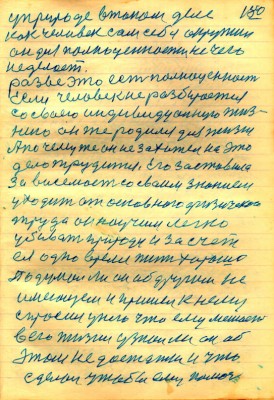 150
у природе в таком деле
как человек сам себя окружил
он для полноценности не чего
не делает.
разве это есть полноценност
Если человек не разбирается
со своею индивидуанною жиз-
нию он же родился для жизни
А почему же он не захотел на это
дело трудится. Его заставила
Зависемость со своим знанием
уходит от основного физическо
труда он научился легко
убивать природу и за счет
ея одно время жить хорошо
Подумал ли он об других не
имеющем и пришел к нему
спросил у него что ему мешает
в его жизни узнал ли он об
этом недостатки и что
сделал чтобы ему помоч